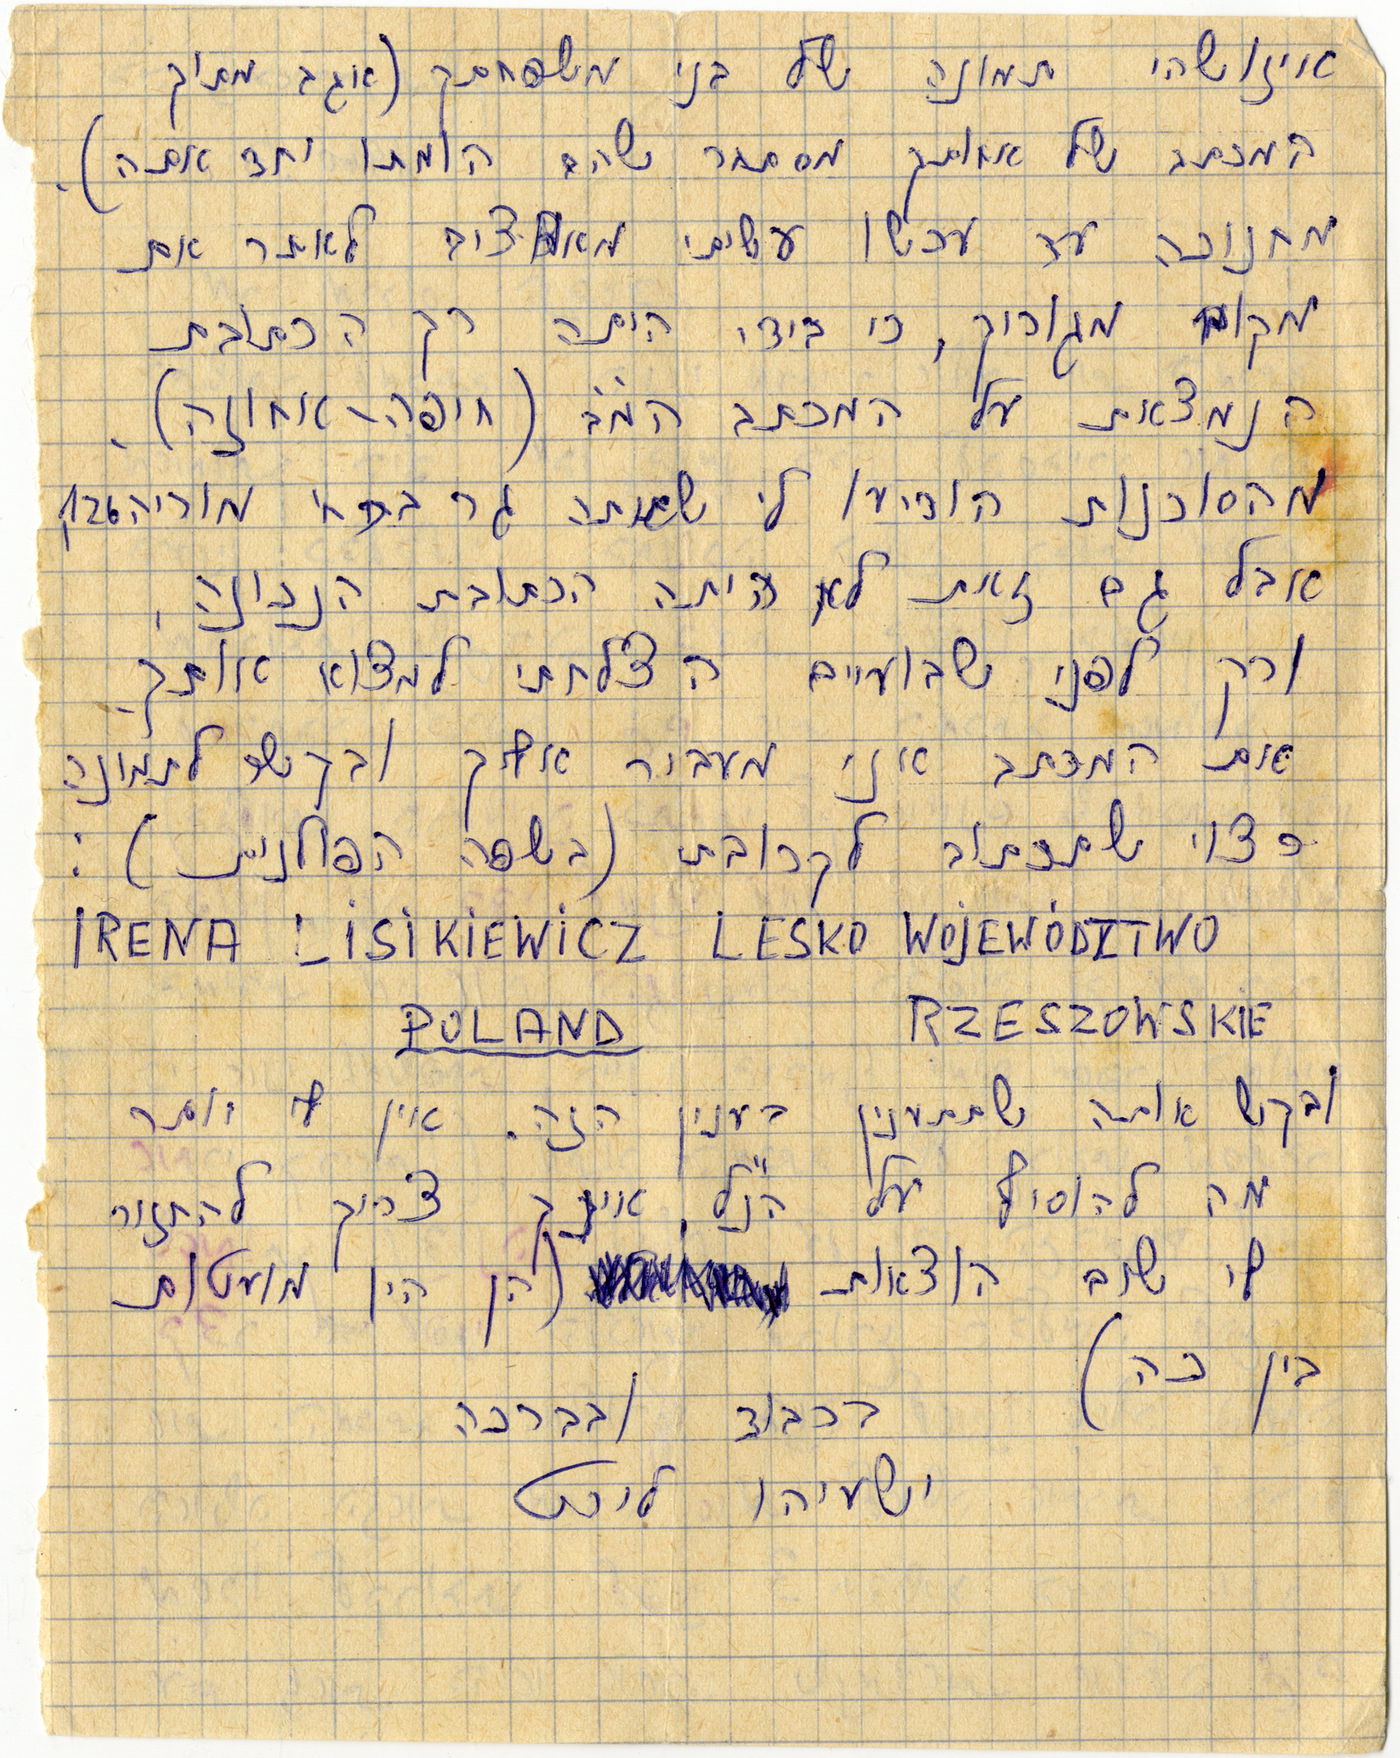 איזושהי תמונה של בני משפחתך (אגב מתוך
המכתב של אחותך מסתבר שהם הומתו יחד אתה).
מחנוכה עד עכשו עשיתי מאמצים לאתר את
מקום מגוריך, כי בידי היתה רק הכתובת
הנמצאת על המכתב המ"ב (חיפה-אחוזה).
מהסוכנות הודיעו לי שאתה גר ברח' מוריה 126
אבל גם זאת לא היתה הכתובת הנכונה,
ורק לפני שבועיים הצלחתי למצוא אותך.
את המכתב אני מעביר אליך ובקשר לתמונה
רצוי שתכתוב לקרובת (בשפה הפולנית):
IRENA LISIKIEWICZ LESKO WOJEWÓDZTWO
RZESZOWSKIE POLAND
ובקש אותה שתתענין בענין הזה. אין לי יותר
מה להוסיף על הנ"ל, אינך צריך להחזיר
לי שוב הוצאות (הן היו מועטות
בין כה)
בכבוד ובברכה
ישעיהו ליכט